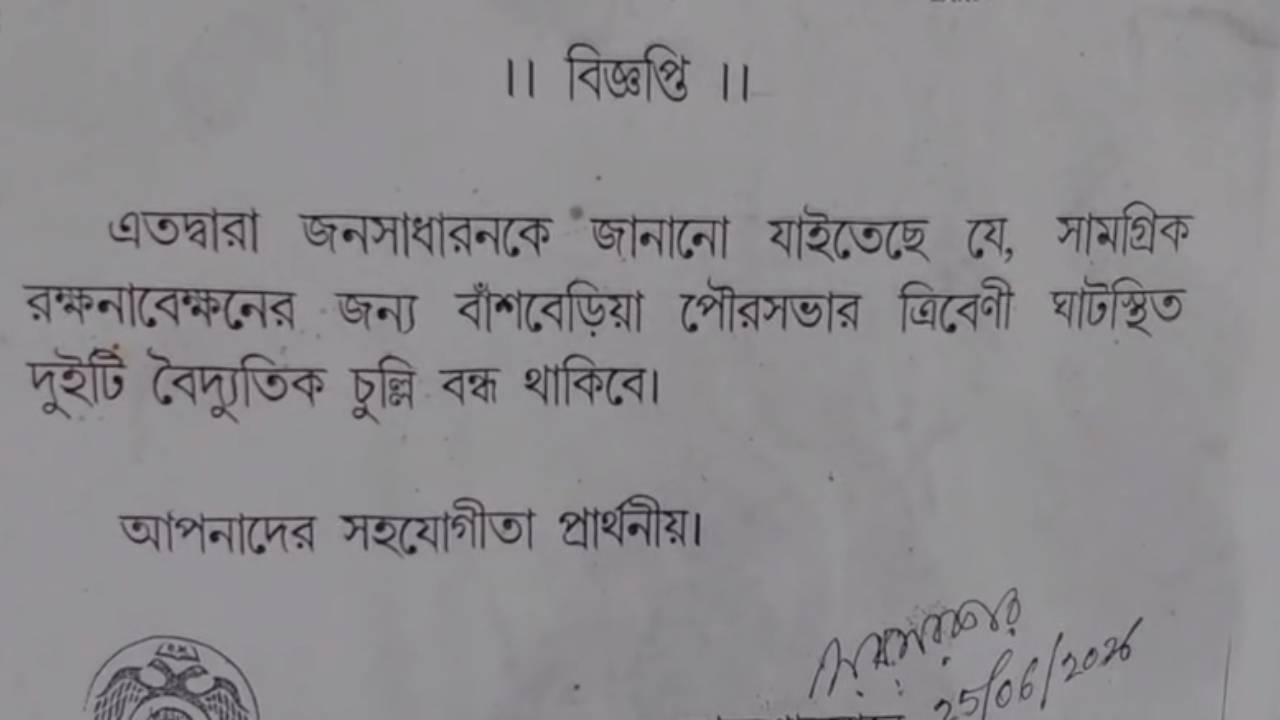 ।। বিজ্ঞপ্তি ।।
এতদ্বারা জনসাধারনকে জানানো যাইতেছে যে, সামগ্রিক
রক্ষনাবেক্ষনের জন্য বাঁশবেড়িয়া পৌরসভার ত্রিবেণী ঘাটস্থিত
দুইটি বৈদ্যুতিক চুল্লি বন্ধ থাকিবে।
আপনাদের সহযোগীতা প্রার্থনীয়।
25/06/2026